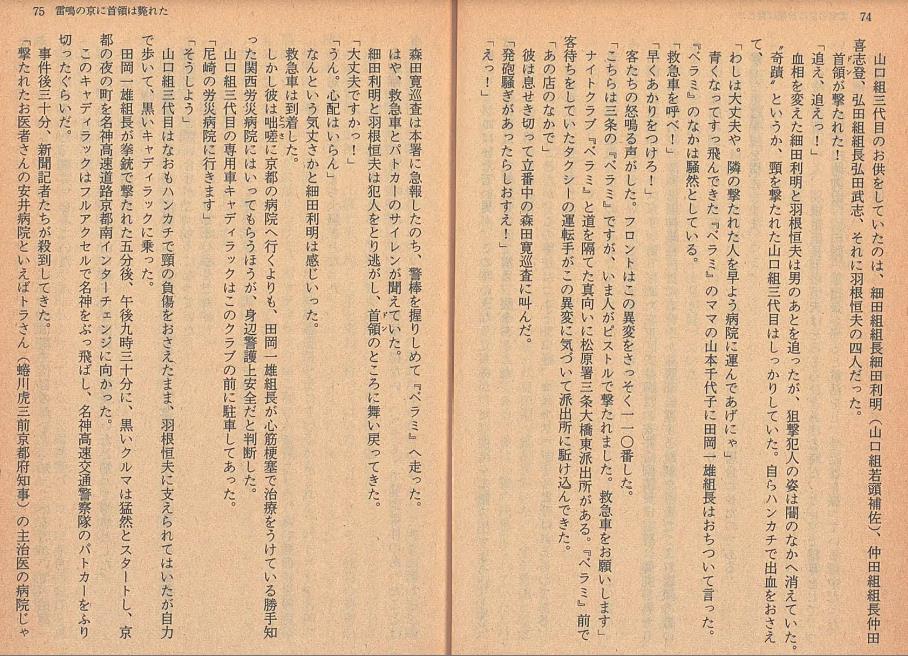 74
山口組三代目のお供をしていたのは、細田組組長細田利明（山口組若頭補佐）、仲田組組長仲田
喜志登、弘田組組長弘田武志、それに羽根恒夫の四人だった。
首領が撃たれた！
「追え、追えっ！」
血相を変えた細田利明と羽根恒夫は男のあとを追ったが、狙撃犯人の姿は闇のなかへ消えていた。
〝奇蹟〟というか、頸を撃たれた山口組三代目はしっかりしていた。自らハンカチで出血をおさえ
て、
「わしは大丈夫や。隣の撃たれた人を早よう病院に運んであげにゃ」
青くなってすっ飛んできた『ベラミ』のママの山本千代子に田岡一雄組長はおちついて言った。
『ベラミ』のなかは騒然としている。
「救急車を呼べ！」
「早くあかりをつけろ！」
客たちの怒鳴る声がした。フロントはこの異変をさっそく一一〇番した。
「こちらは三条の『ベラミ』ですが、いま人がピストルで撃たれました。救急車をお願いします」
ナイトクラブ『ベラミ』と道を隔てた真向いに松原署三条大橋東派出所がある。『ベラミ』前で
客待ちをしていたタクシーの運転手がこの異変に気づいて派出所に駈け込んできた。
「あの店のなかで」
彼は息せき切って立番中の森田寛巡査に叫んだ。
「発砲騒ぎがあったらしおすえ！」
「えっ！」
75 雷鳴の京に首領は斃れた
森田寛巡査は本署に急報したのち、警棒を握りしめて『ベラミ』へ走った。
はや、救急車とパトカーのサイレンが聞えていた。
細田利明と羽根恒夫は犯人をとり逃がし、首領のところに舞い戻ってきた。
ドン
「大丈夫ですかっ！」
「うん。心配はいらん」
なんという気丈さかと細田利明は感じいった。
救急車は到着した。
しかし彼は咄嗟に京都の病院へ行くよりも、田岡一雄組長が心筋梗塞で治療をうけている勝手知
とっさ
った関西労災病院にはいってもらうほうが、身辺警護上安全だと判断した。
山口組三代目の専用車キャディラックはこのクラブの前に駐車してあった。
「尼崎の労災病院に行きます」
「そうしよう」
山口組三代目はなおもハンカチで頸の負傷をおさえたまま、羽根恒夫に支えられてはいたが自力
で歩いて、黒いキャディラックに乗った。
田岡一雄組長が拳銃で撃たれた五分後、午後九時三十分に、黒いクルマは猛然とスタートし、京
都の夜の町を名神高速道路京都南インターチェンジに向かった。
このキャディラックはフルアクセルで名神をぶっ飛ばし、名神高速交通警察隊のパトカーをふり
切ったぐらいだ。
事件後三十分、新聞記者たちが殺到してきた。
「撃たれたお医者さんの安井病院といえばトラさん（蜷川虎三前京都府知事）の主治医の病院じゃ